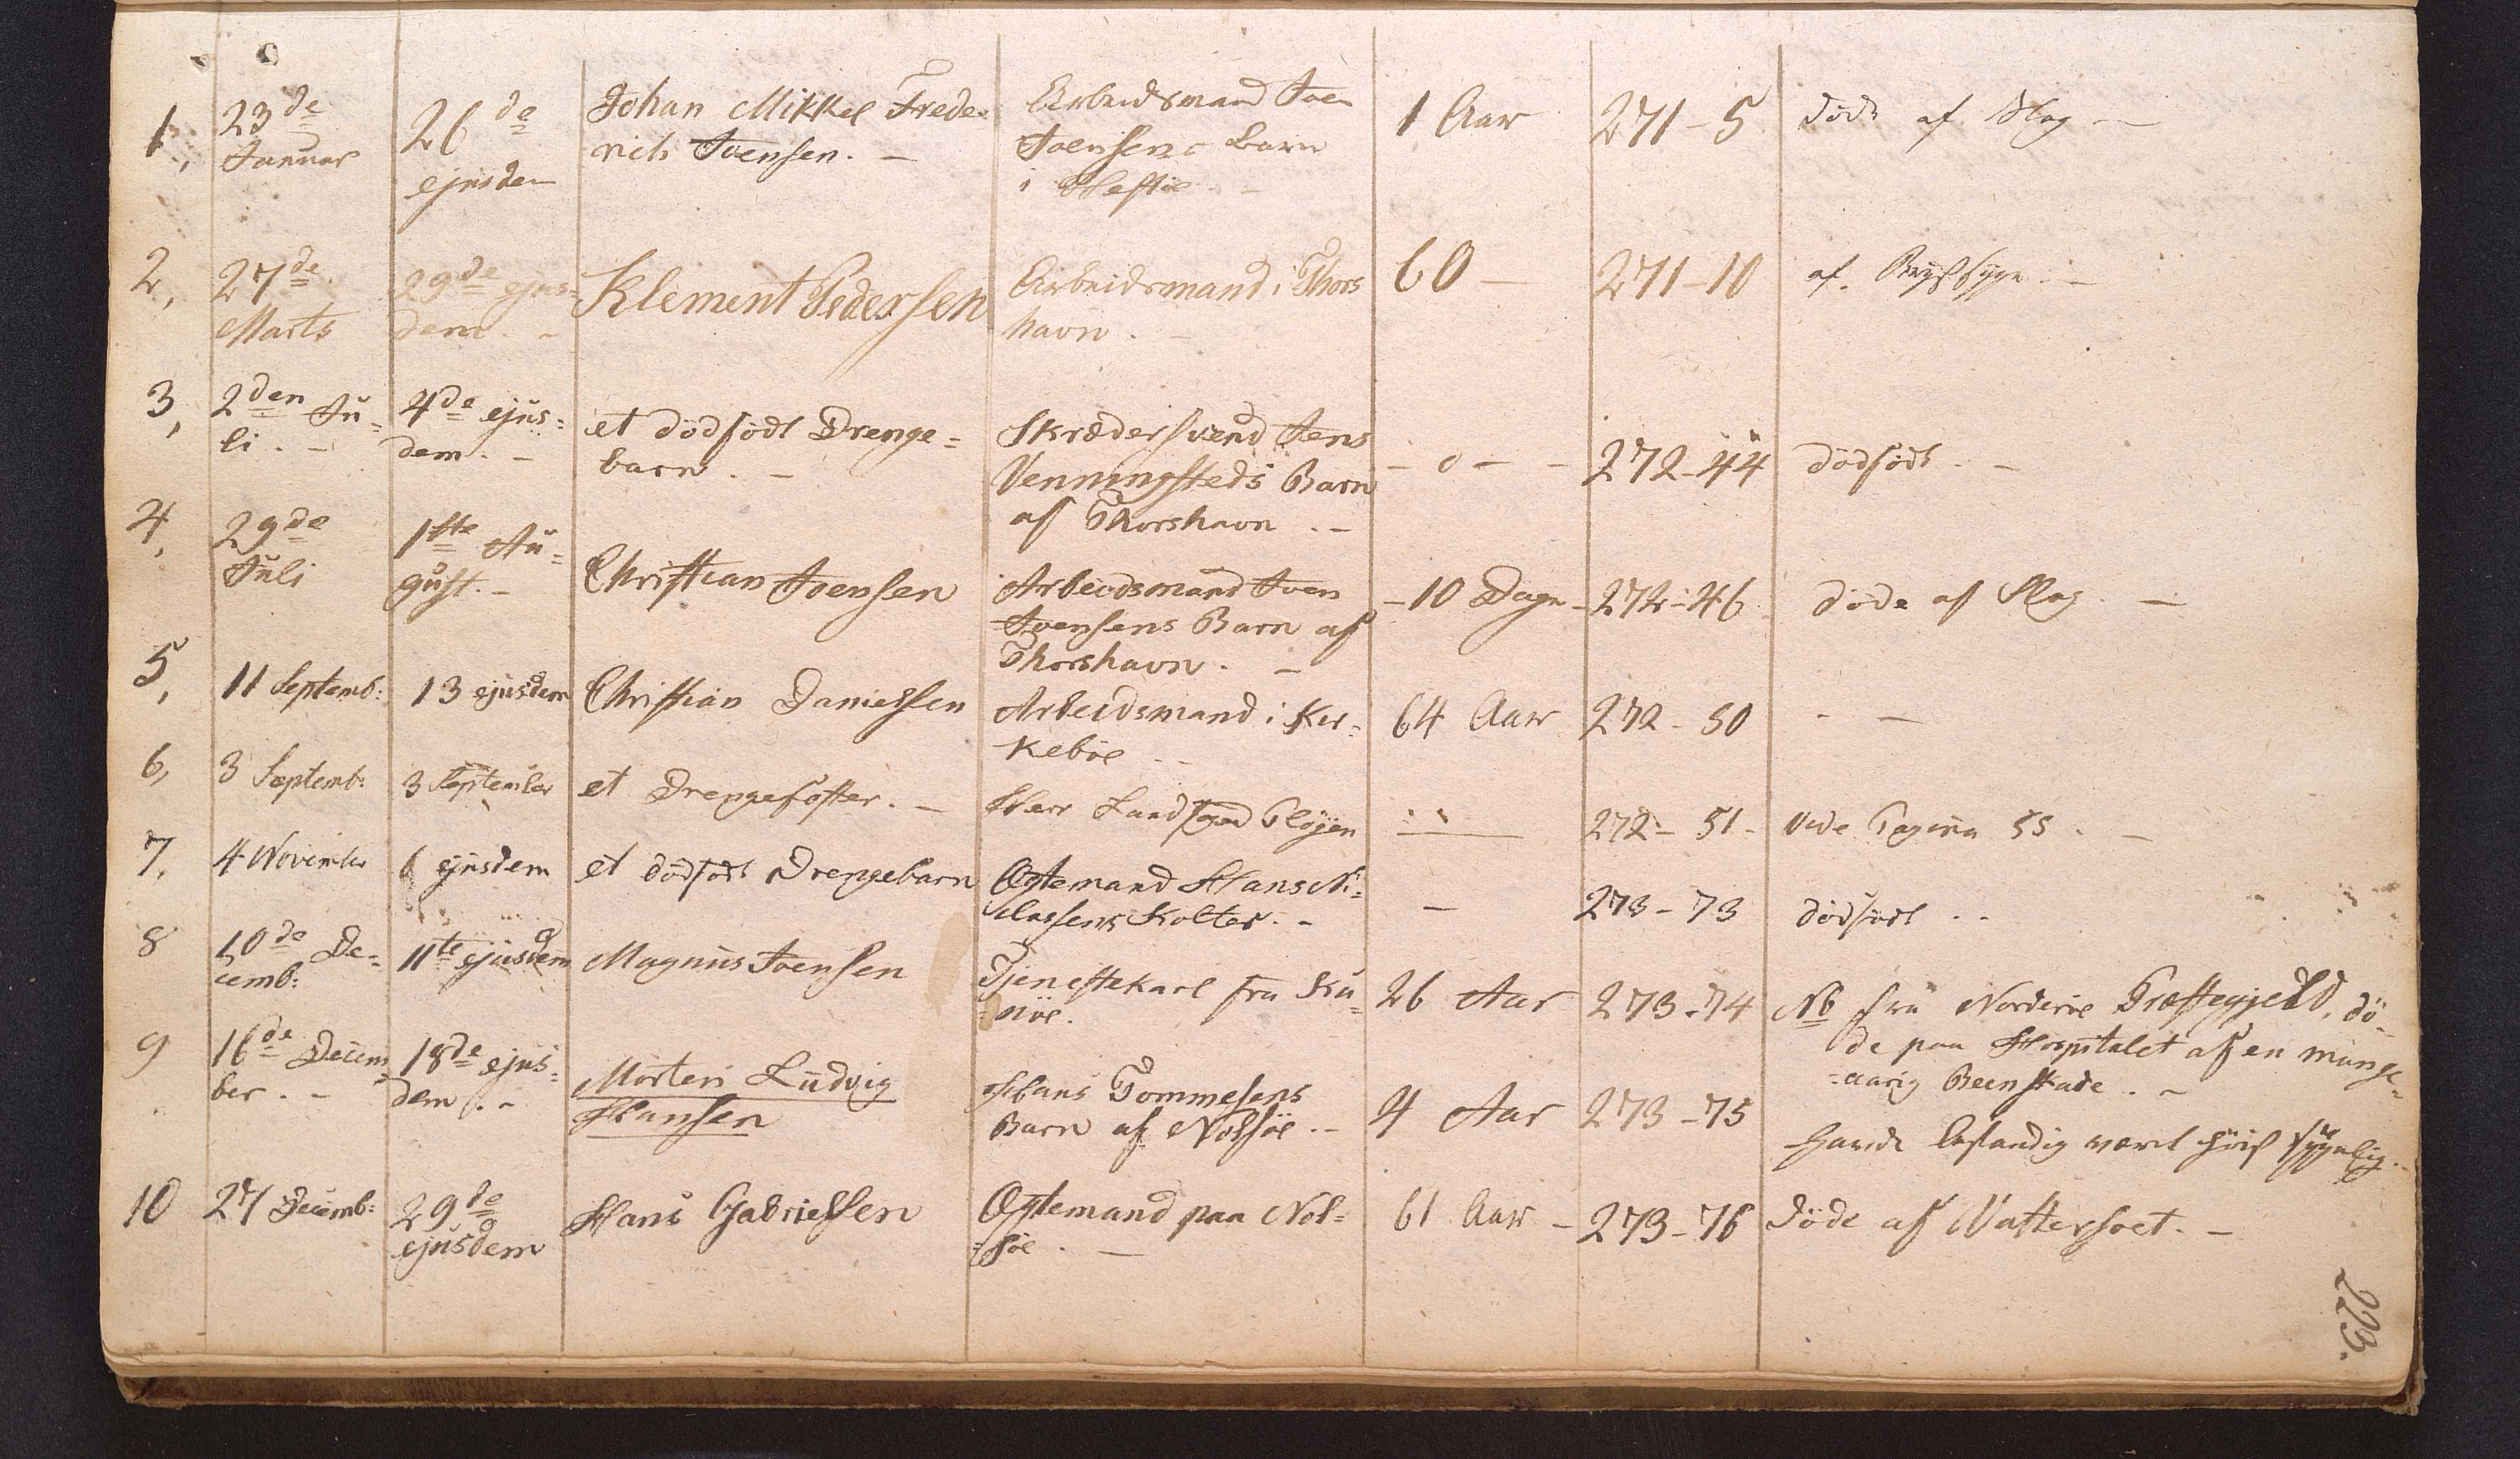 1, 23de Januar 26de ejusdem Johan Mikkel Frede-
rich Joensen. - Arbeidsmand Joen
Joensens Barn
i Hestøe - 1 Aar 271-5 døde af Slag -
2, 27de Marts 29de ejus=
dem. - Klement Pedersen Arbeidsmand i Thors
havn. - 60 - 271-10 af Brystsyge. -
3, 2den Ju=
li. - 4de ejus=
dem. - et dödfödt Drenge=
barn. - Skrædersvend Jens
Venningsteds Barn
af Thorshavn. - - 0 - - 272-44 dödfödt. -
4, 29de
Juli 1ste Au=
gust. - Christian Joensen Arbeidsmand Joen
Joensens Barn af
Thorshavn. - -10 Dage- 272-46 döde af Slag. -
5, 11 Septemb: 13 ejusdem Christian Danielsen Arbeidsmand i Kir=
keböe - - 64 Aar 272-50 - -
6, 3 Septemb: 3 September et Drengefoster. - Herr Landfoged Pløyen 272-51- Vide Pagina 55. -
7, 4 November 6 ejusdem et dödfödt Drengebarn Ogtemand Hans Ni=
classens Kolter. - - 273-73 dödfödt. -
8 10de De=
cemb: 11te ejusdem Magnus Joensen Tjenestekarl fra Ku=
=nöe. 26 Aar 273-74 NB fra Norderöe Præstegjeld, dö-
de paa Hospitalet af en mange-
=aarig Beenskade. -
9 16de Decem
ber. - 18de ejus=
dem. - Morten Ludvig
Hansen Hans Tommesens
Barn af Nolsöe. - 4 Aar 273-75 havde bestandig været svygelig. -
10 27 Decemb: 29de
ejusdem Hans Gabrielsen Ogtemand paa Nol=
=söe. - 61 Aar - 273-76 döde af Vattersoet. -
223.